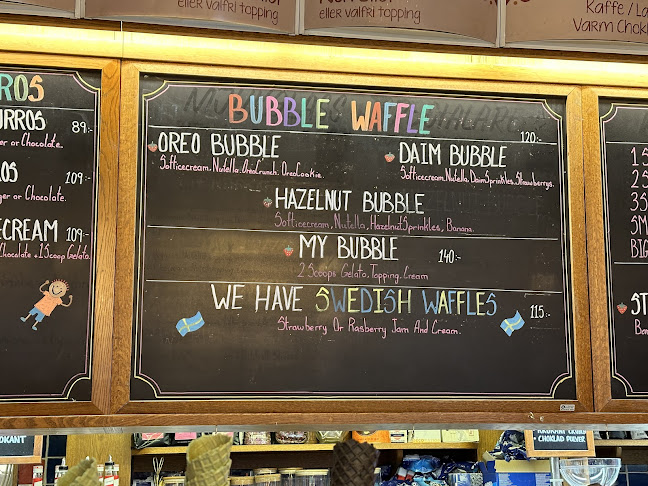 eller valfri topping
eller valfri topping
Kaffe / La
Varm Chokl
ROS
URROS 89:-
er or Chocolate.
OS 109:-
ger or Chocolate.
ECREAM 109:-
Chocolate + 1 Scoop Gelato.
BUBBLE WAFFLE
120:-
OREO BUBBLE
Softicecream. Nutella. OreoCrunch. OreoCookie.
DAIM BUBBLE
Softicecream. Nutella. DaimSprinkles. Strawberrys.
HAZELNUT BUBBLE
Softicecream, Nutella, HazelnutSprinkles, Banana.
MY BUBBLE 140:-
2 Scoops Gelato, Topping, Cream
WE HAVE SWEDISH WAFFLES 115:-
Strawberry Or Rasberry Jam And Cream.
1 S
2 S
3 S
SM
BIG
ST
OKANT
CHOKLAD PULVER